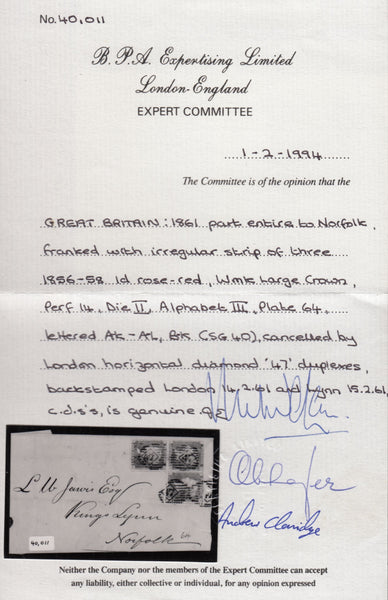 No. 40,011
B. P. A. Expertising Limited
London-England
EXPERT COMMITTEE
1-2-1994
The Committee is of the opinion that the
GREAT BRITAIN: 1861 part entire to Norfolk,
franked with irregular strip of three
1856-58 1d rose-red, Wmk Large Crown,
Perf 14, Die II, Alphabet III, Plate 64,
lettered AK-AL, BK (SG 40), cancelled by
London horizontal diamond '47' duplexes,
backstamped London 14.2.61 and Lynn 15.2.61,
c.d.s's, is genuine.
Andrew Claridge
Esqr
Kings Lynn
Norfolk
40,011
Neither the Company nor the members of the Expert Committee can accept
any liability, either collective or individual, for any opinion expressed